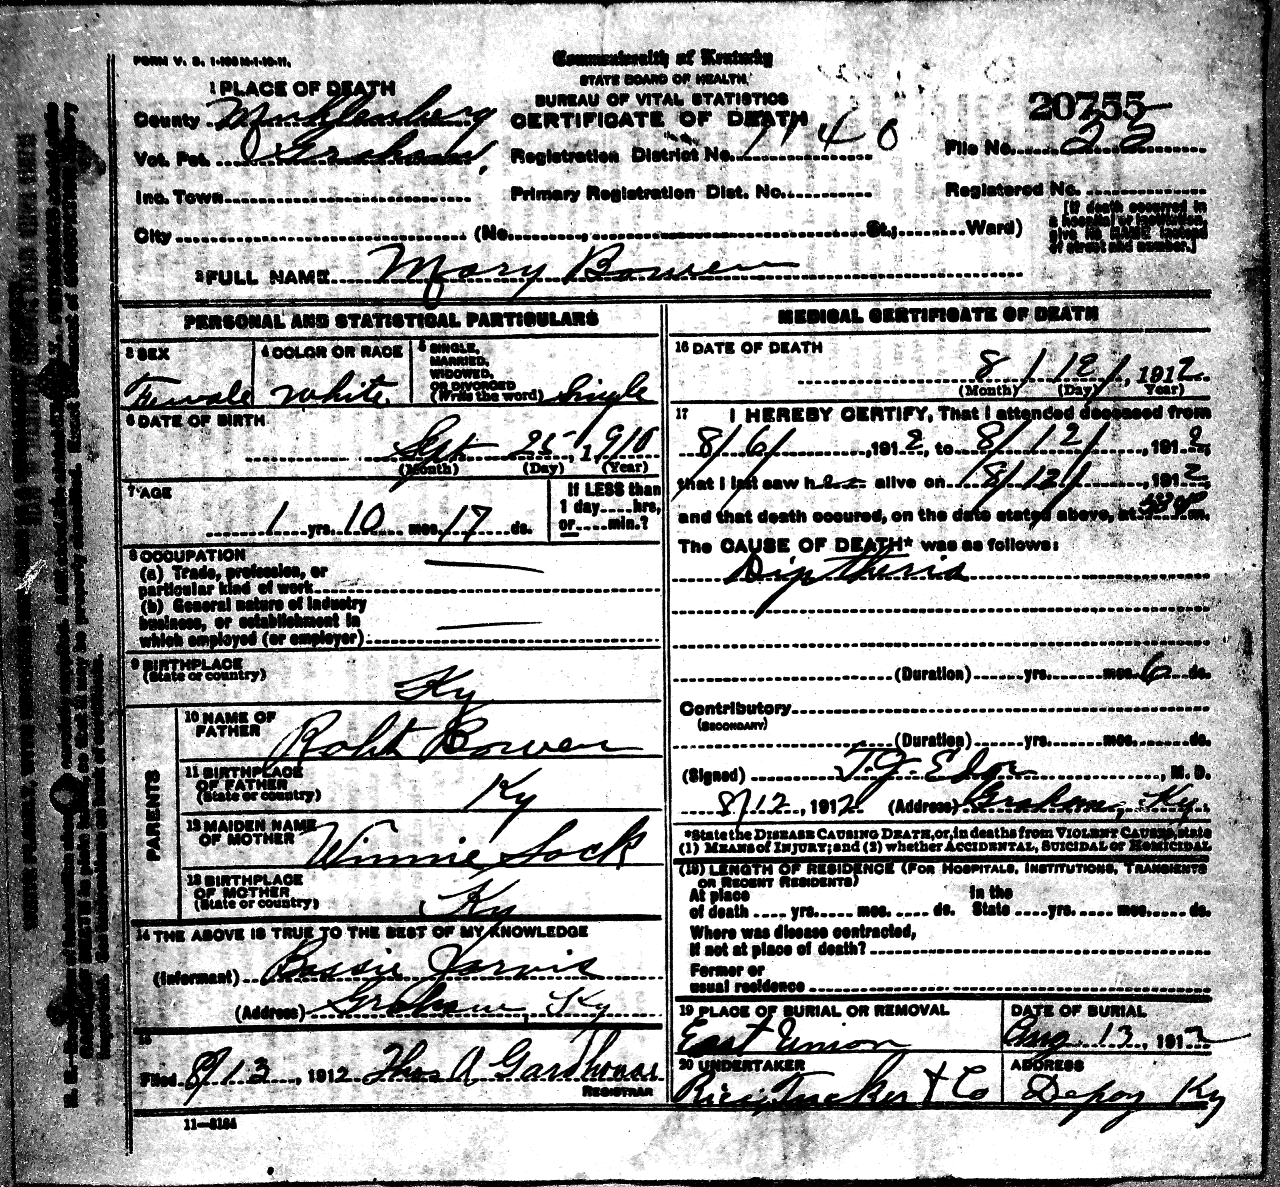 FORM V. S. 1-
Commonwealth of Kentucky
STATE BOARD OF HEALTH,
BUREAU OF VITAL STATISTICS
CERTIFICATE OF DEATH
1 PLACE OF DEATH
County Muhlenberg
Vot. Pct. Graham,
Inc. Town
City (No. , St.; Ward)
Registration District No. 1140
Primary Registration Dist. No.
20755
File No. 22
Registered No.
[If death occurred in
a hospital or institution,
give its NAME instead
of street and number.]
2 FULL NAME Mary Bowen
PERSONAL AND STATISTICAL PARTICULARS
3 SEX
Female
4 COLOR OR RACE
White
5 SINGLE,
MARRIED,
WIDOWED,
OR DIVORCED
(Write the word) Single
6 DATE OF BIRTH
Sept 25, 1910
(Month) (Day) (Year)
7 AGE
1 yrs. 10 mos. 17 ds.
If LESS than
1 day....hrs.
or.....min.?
8 OCCUPATION
(a) Trade, profession, or
particular kind of work
(b) General nature of industry
business, or establishment in
which employed (or employer)
9 BIRTHPLACE
(State or country)
Ky
PARENTS
10 NAME OF
FATHER
Robt Bowen
11 BIRTHPLACE
OF FATHER
(State or country)
Ky
12 MAIDEN NAME
OF MOTHER
Winnie Sock
13 BIRTHPLACE
OF MOTHER
(State or country)
Ky
14 THE ABOVE IS TRUE TO THE BEST OF MY KNOWLEDGE
(Informant) Bessie Jarvis
(Address) Graham, Ky
15
Filed 8/13, 1912 Thos A Gardhouse
REGISTRAR
11—3184
MEDICAL CERTIFICATE OF DEATH
16 DATE OF DEATH
8/12/, 1912
(Month) (Day) (Year)
17 I HEREBY CERTIFY, That I attended deceased from
8/6/, 1912, to 8/12/, 1912,
that I last saw her alive on 8/12/, 1912,
and that death occured, on the date stated above, at m.
The CAUSE OF DEATH* was as follows:
Diptheria
(Duration) yrs. mos. 6 ds.
Contributory
(SECONDARY)
(Duration) yrs. mos. ds.
(Signed) , M. D.
8/12, 1912 (Address) Graham, Ky.
*State the DISEASE CAUSING DEATH, or, in deaths from VIOLENT CAUSES, state
(1) MEANS of INJURY; and (2) whether ACCIDENTAL, SUICIDAL or HOMICIDAL
(18) LENGTH OF RESIDENCE (FOR HOSPITALS, INSTITUTIONS, TRANSIENTS
OR RECENT RESIDENTS)
At place In the
of death .... yrs. .... mos. .... ds. State .... yrs. .... mos. .... ds.
Where was disease contracted,
if not at place of death?
Former or
usual residence
19 PLACE OF BURIAL OR REMOVAL
East Union
DATE OF BURIAL
Aug 13, 1912
20 UNDERTAKER
Rice, Tucker & Co
ADDRESS
Depoy Ky